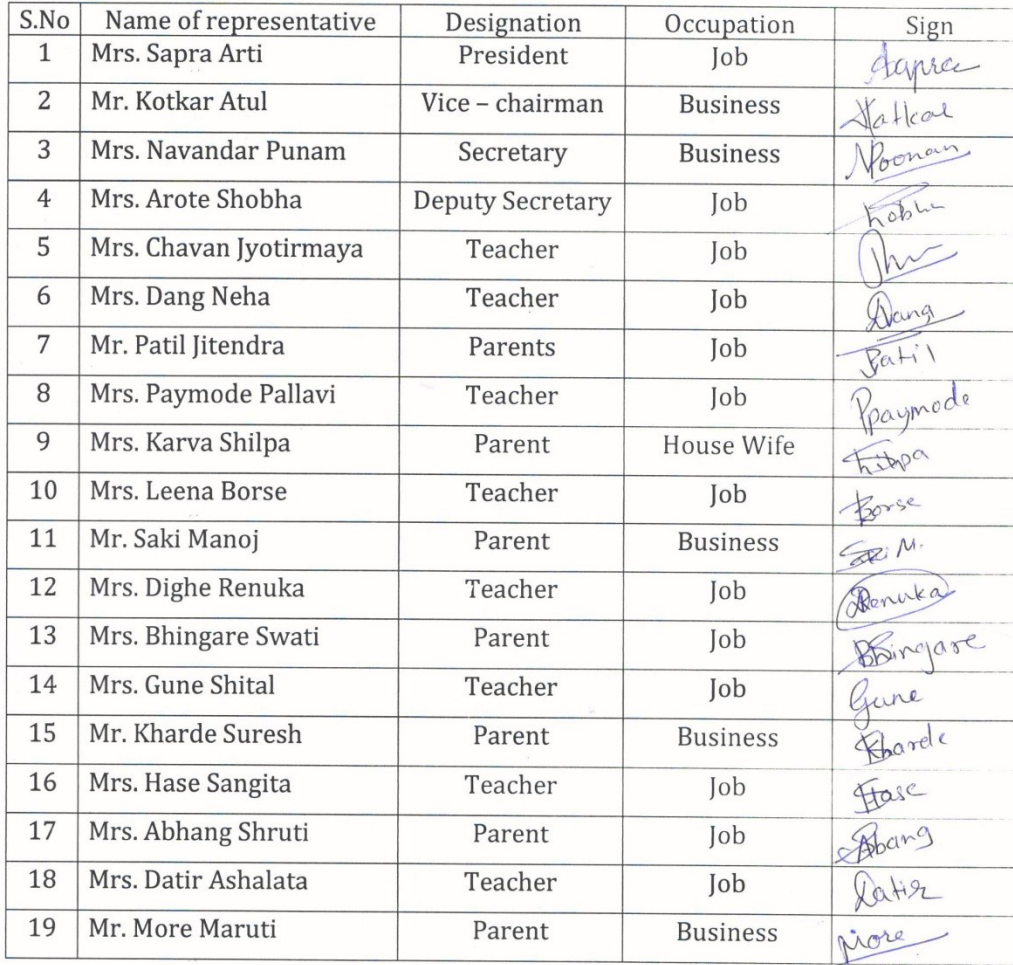 S.No Name of representative Designation Occupation Sign
1 Mrs. Sapra Arti President Job Sapra
2 Mr. Kotkar Atul Vice – chairman Business
3 Mrs. Navandar Punam Secretary Business NPoonam
4 Mrs. Arote Shobha Deputy Secretary Job
5 Mrs. Chavan Jyotirmaya Teacher Job
6 Mrs. Dang Neha Teacher Job Dang
7 Mr. Patil Jitendra Parents Job Patil
8 Mrs. Paymode Pallavi Teacher Job Ppaymode
9 Mrs. Karva Shilpa Parent House Wife
10 Mrs. Leena Borse Teacher Job Borse
11 Mr. Saki Manoj Parent Business
12 Mrs. Dighe Renuka Teacher Job Renuka
13 Mrs. Bhingare Swati Parent Job Bhingare
14 Mrs. Gune Shital Teacher Job Gune
15 Mr. Kharde Suresh Parent Business Kharde
16 Mrs. Hase Sangita Teacher Job Hase
17 Mrs. Abhang Shruti Parent Job Abang
18 Mrs. Datir Ashalata Teacher Job Datir
19 Mr. More Maruti Parent Business More